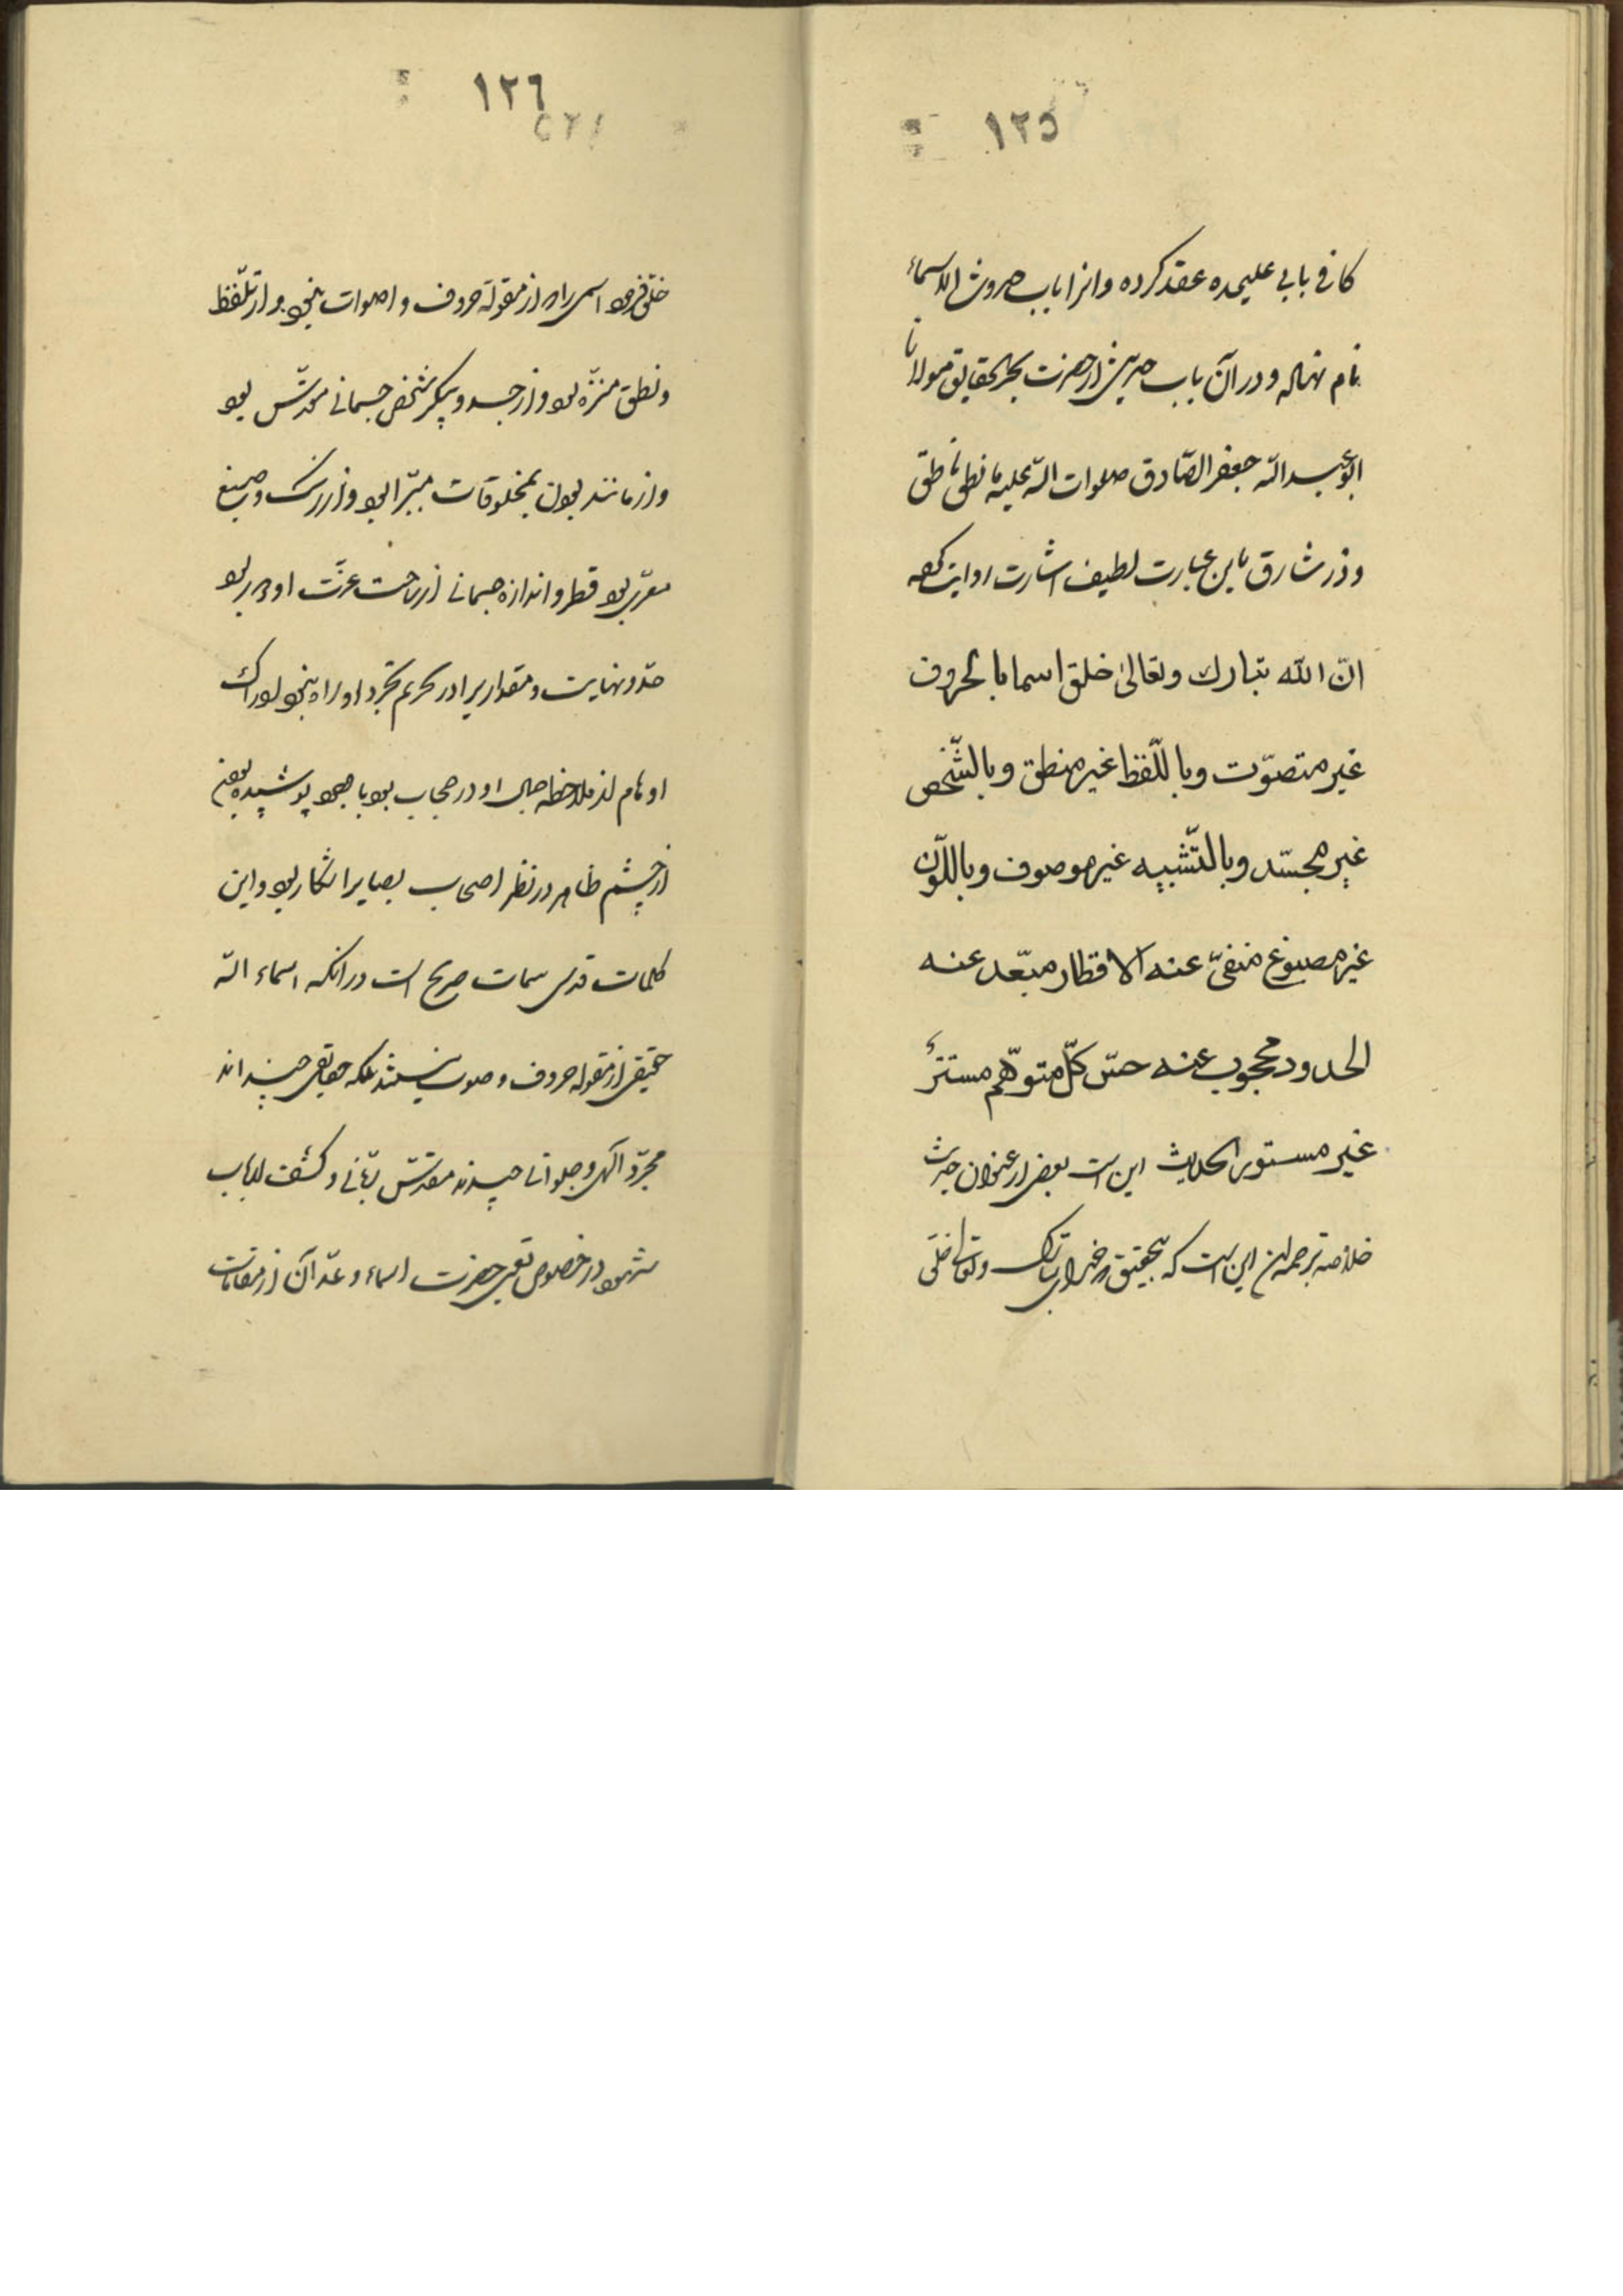 ١٢٥
كافی بابی علیحده عقد کرده و انرا باب حدوث الاسماء
نام نهاده و در آن باب حدیثی از حضرت بحر الحقایق مولانا
ابو عبد الله جعفر الصّادق صلوات الله علیه ما نطق ناطق
و ذر شارق باین عبارت لطیف اشارت روایت کرده
انّ الله تبارك وتعالیٰ خلق اسما بالحروف
غير متصوّت وباللّفظ غير منطق وبالشّخص
غير مجسّد وبالتّشبيه غير موصوف وباللّون
غير مصبوغ منفیّ عنه الاقطار مبعّد عنه
الحدود محجوب عنه حسّ كلّ متوهّم مستترٌ
غير مستور الحدیث این است بعضی از عنوان حدیث
خلاصه ترجمه این این است که بتحقیق خدای تبارک و تعالی خلق
١٢٦
خلق فرمود اسمی را که از مقوله حروف و اصوات نبود و از تلفّظ
و نطق منزّه بود و از جسد و پیکر شخص جسمانی مقدّس بود
و از مانند بودن بمخلوقات مبرّا بود و از رنگ و صبغ
معرّی بود قطر و اندازه جسمانی از ساحت عزّت او دور بود
حدّ و نهایت و مقدار را در حریم تجرّد او راه نبود ادراک
اوهام از ملاحظه جمال او در حجاب بود با وجود پوشیده بودن
از چشم ظاهر در نظر اصحاب بصایر اشکار بود و این
کلمات قدسی سمات صریح است در انکه اسماء الله
حقیقی از مقوله حروف و صوت نیستند بلکه حقایقی چند اند
مجرّد الهی و جلوات چند مقدّس ربّانی و کشف للباب
شهود در خصوص تعیین حضرت اسماء و عدّ آن از مقامات